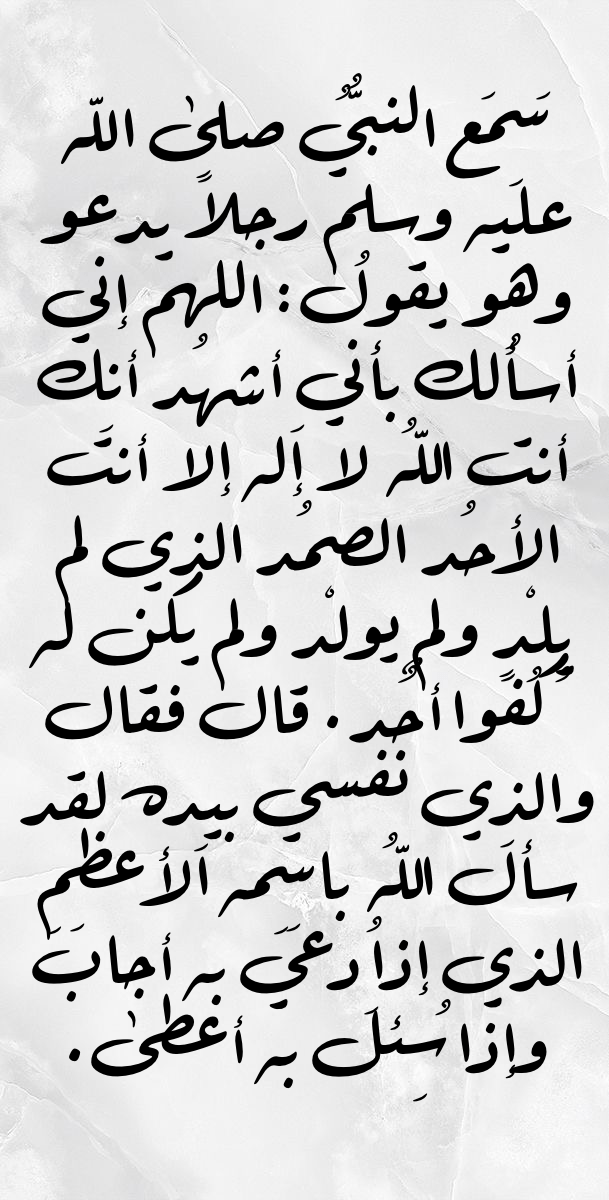 سَمَع النبيُّ صلىٰ اللّه
علَيه وسلم رجلاً يدعو
وهو يقولُ : اللهم إني
أسأُلك بأني أشهُد أنك
أنت اللّهُ لا إَله إلا أنتَ
الأحُد الصمُد الذي لم
يلْد ولم يولْد ولم يكن له
كُفًوا أحٌد . قال فقال
والذي نفسي بيده لقد
سألَ اللّهُ باسمه اَلأعظم
الذي إذاُ دعَيَ به أجابَ
وإذا سُِئلَ به أعطىٰ .